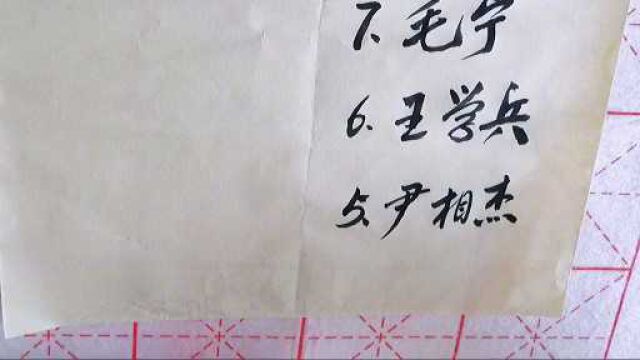 7.毛宁
6.王学兵
5.尹相杰